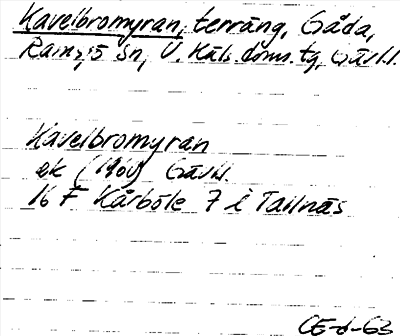 Kavelbromyran, terräng, Gåda,
Ramsjö sn, V. Häls. doms. tg, Gävl.l.
Kavelbromyran
ek (1960) Gävl.
16 F Kårböle 7 i Tallnäs
CE-6-63